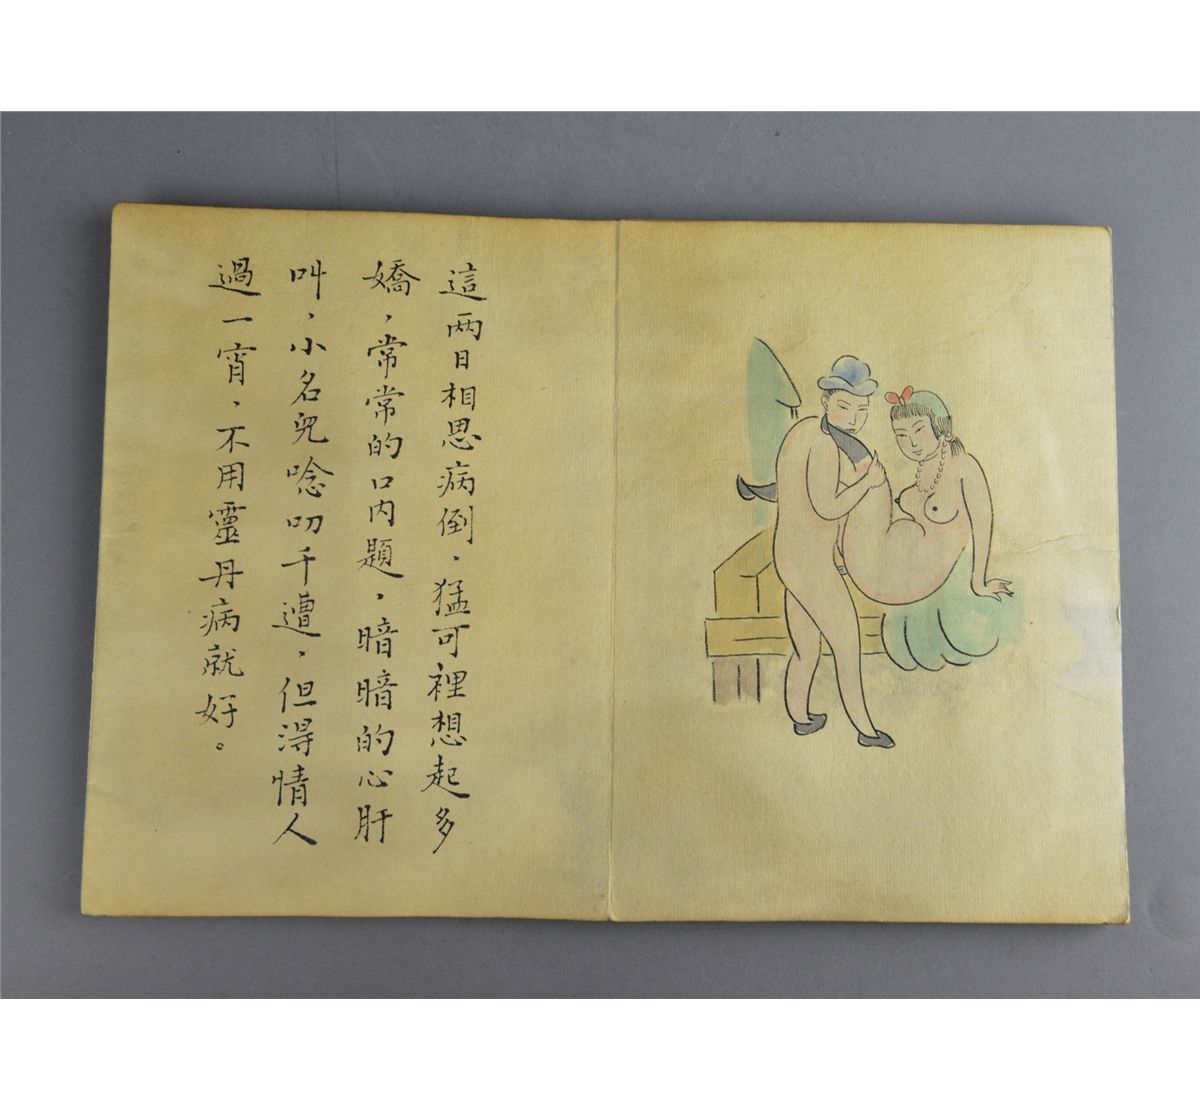 這两日相思病倒．猛可裡想起多
嬌，常常的口内題，暗暗的心肝
叫，小名兒唸叨千遭，但得情人
過一宵，不用靈丹病就好。